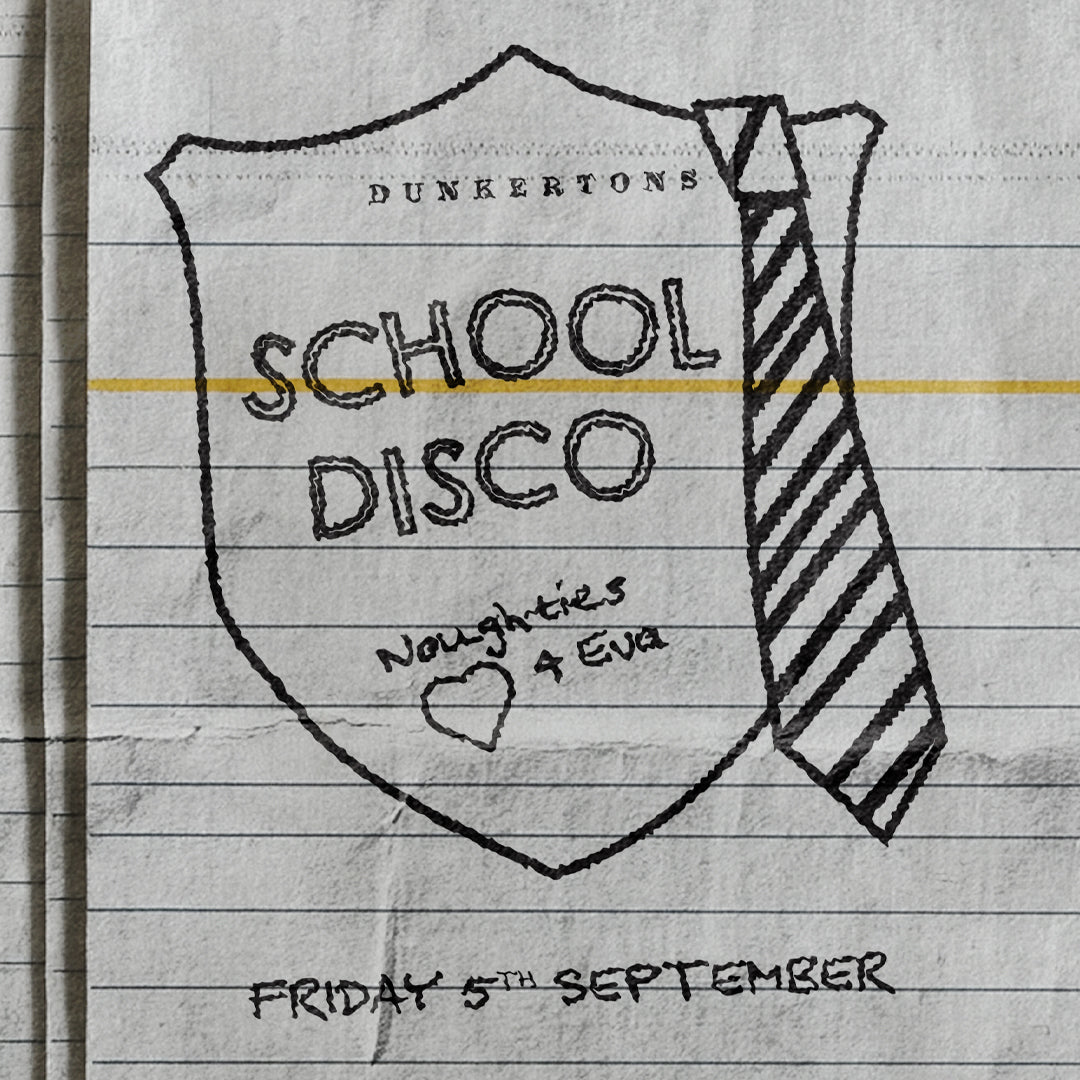 DUNKERTONS
SCHOOL
DISCO
Noughties
4 Eva
FRIDAY 5TH SEPTEMBER